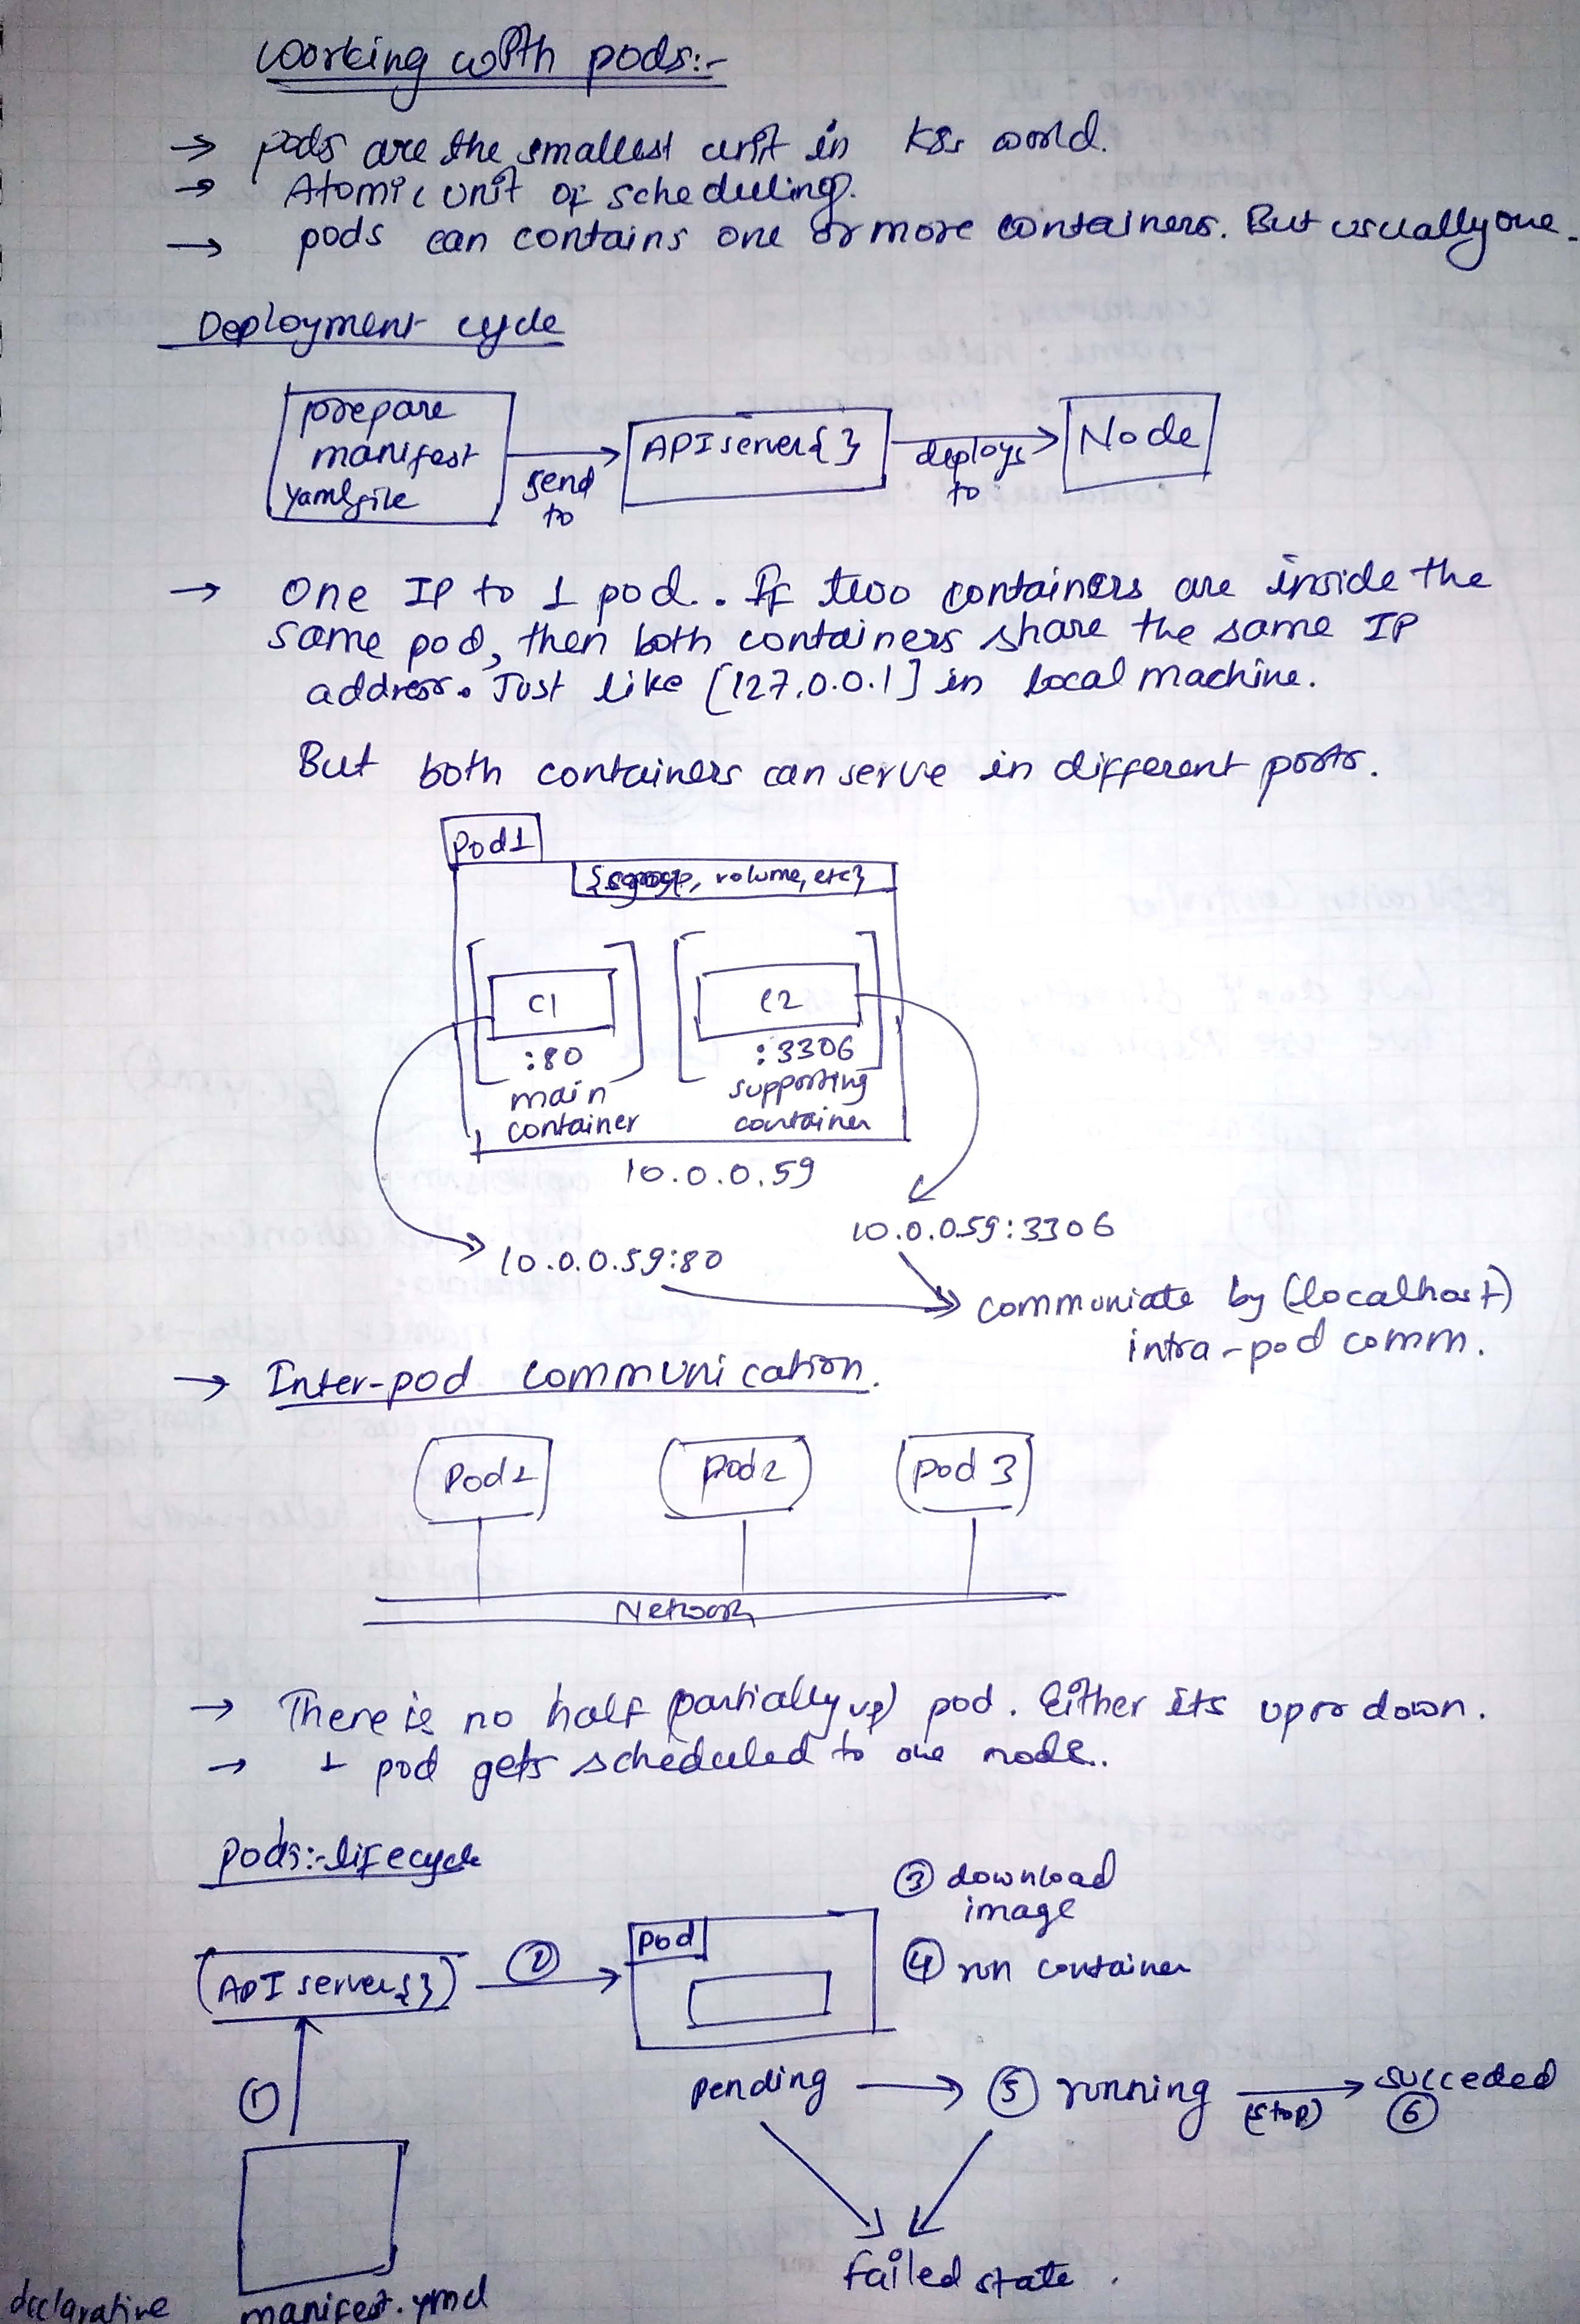 Working with pods:-
→ pods are the smallest unit in K8s world.
→ Atomic unit of scheduling.
→ pods can contains one or more containers. But usually one.
Deployment cycle
prepare
manifest
yaml file
send
to
API server{}
deploys
to
Node
→ One IP to 1 pod. If two containers are inside the
same pod, then both containers share the same IP
address. Just like [127.0.0.1] in local machine.
But both containers can serve in different ports.
Pod1
{cgroup, volume, etc}
C1
C2
:80
:3306
main
container
supporting
container
10.0.0.59
10.0.0.59:3306
10.0.0.59:80
communiate by (localhost)
intra-pod comm.
→ Inter-pod communication.
Pod1
pod2
pod 3
Network
→ There is no half (partially up) pod. Either its up or down.
→ 1 pod gets scheduled to one node.
pods:- lifecycle
③ download
image
Pod
API server{}
②
④ run container
①
pending → ⑤ running → succeded
(stop)
⑥
failed state.
declarative
manifest.yml